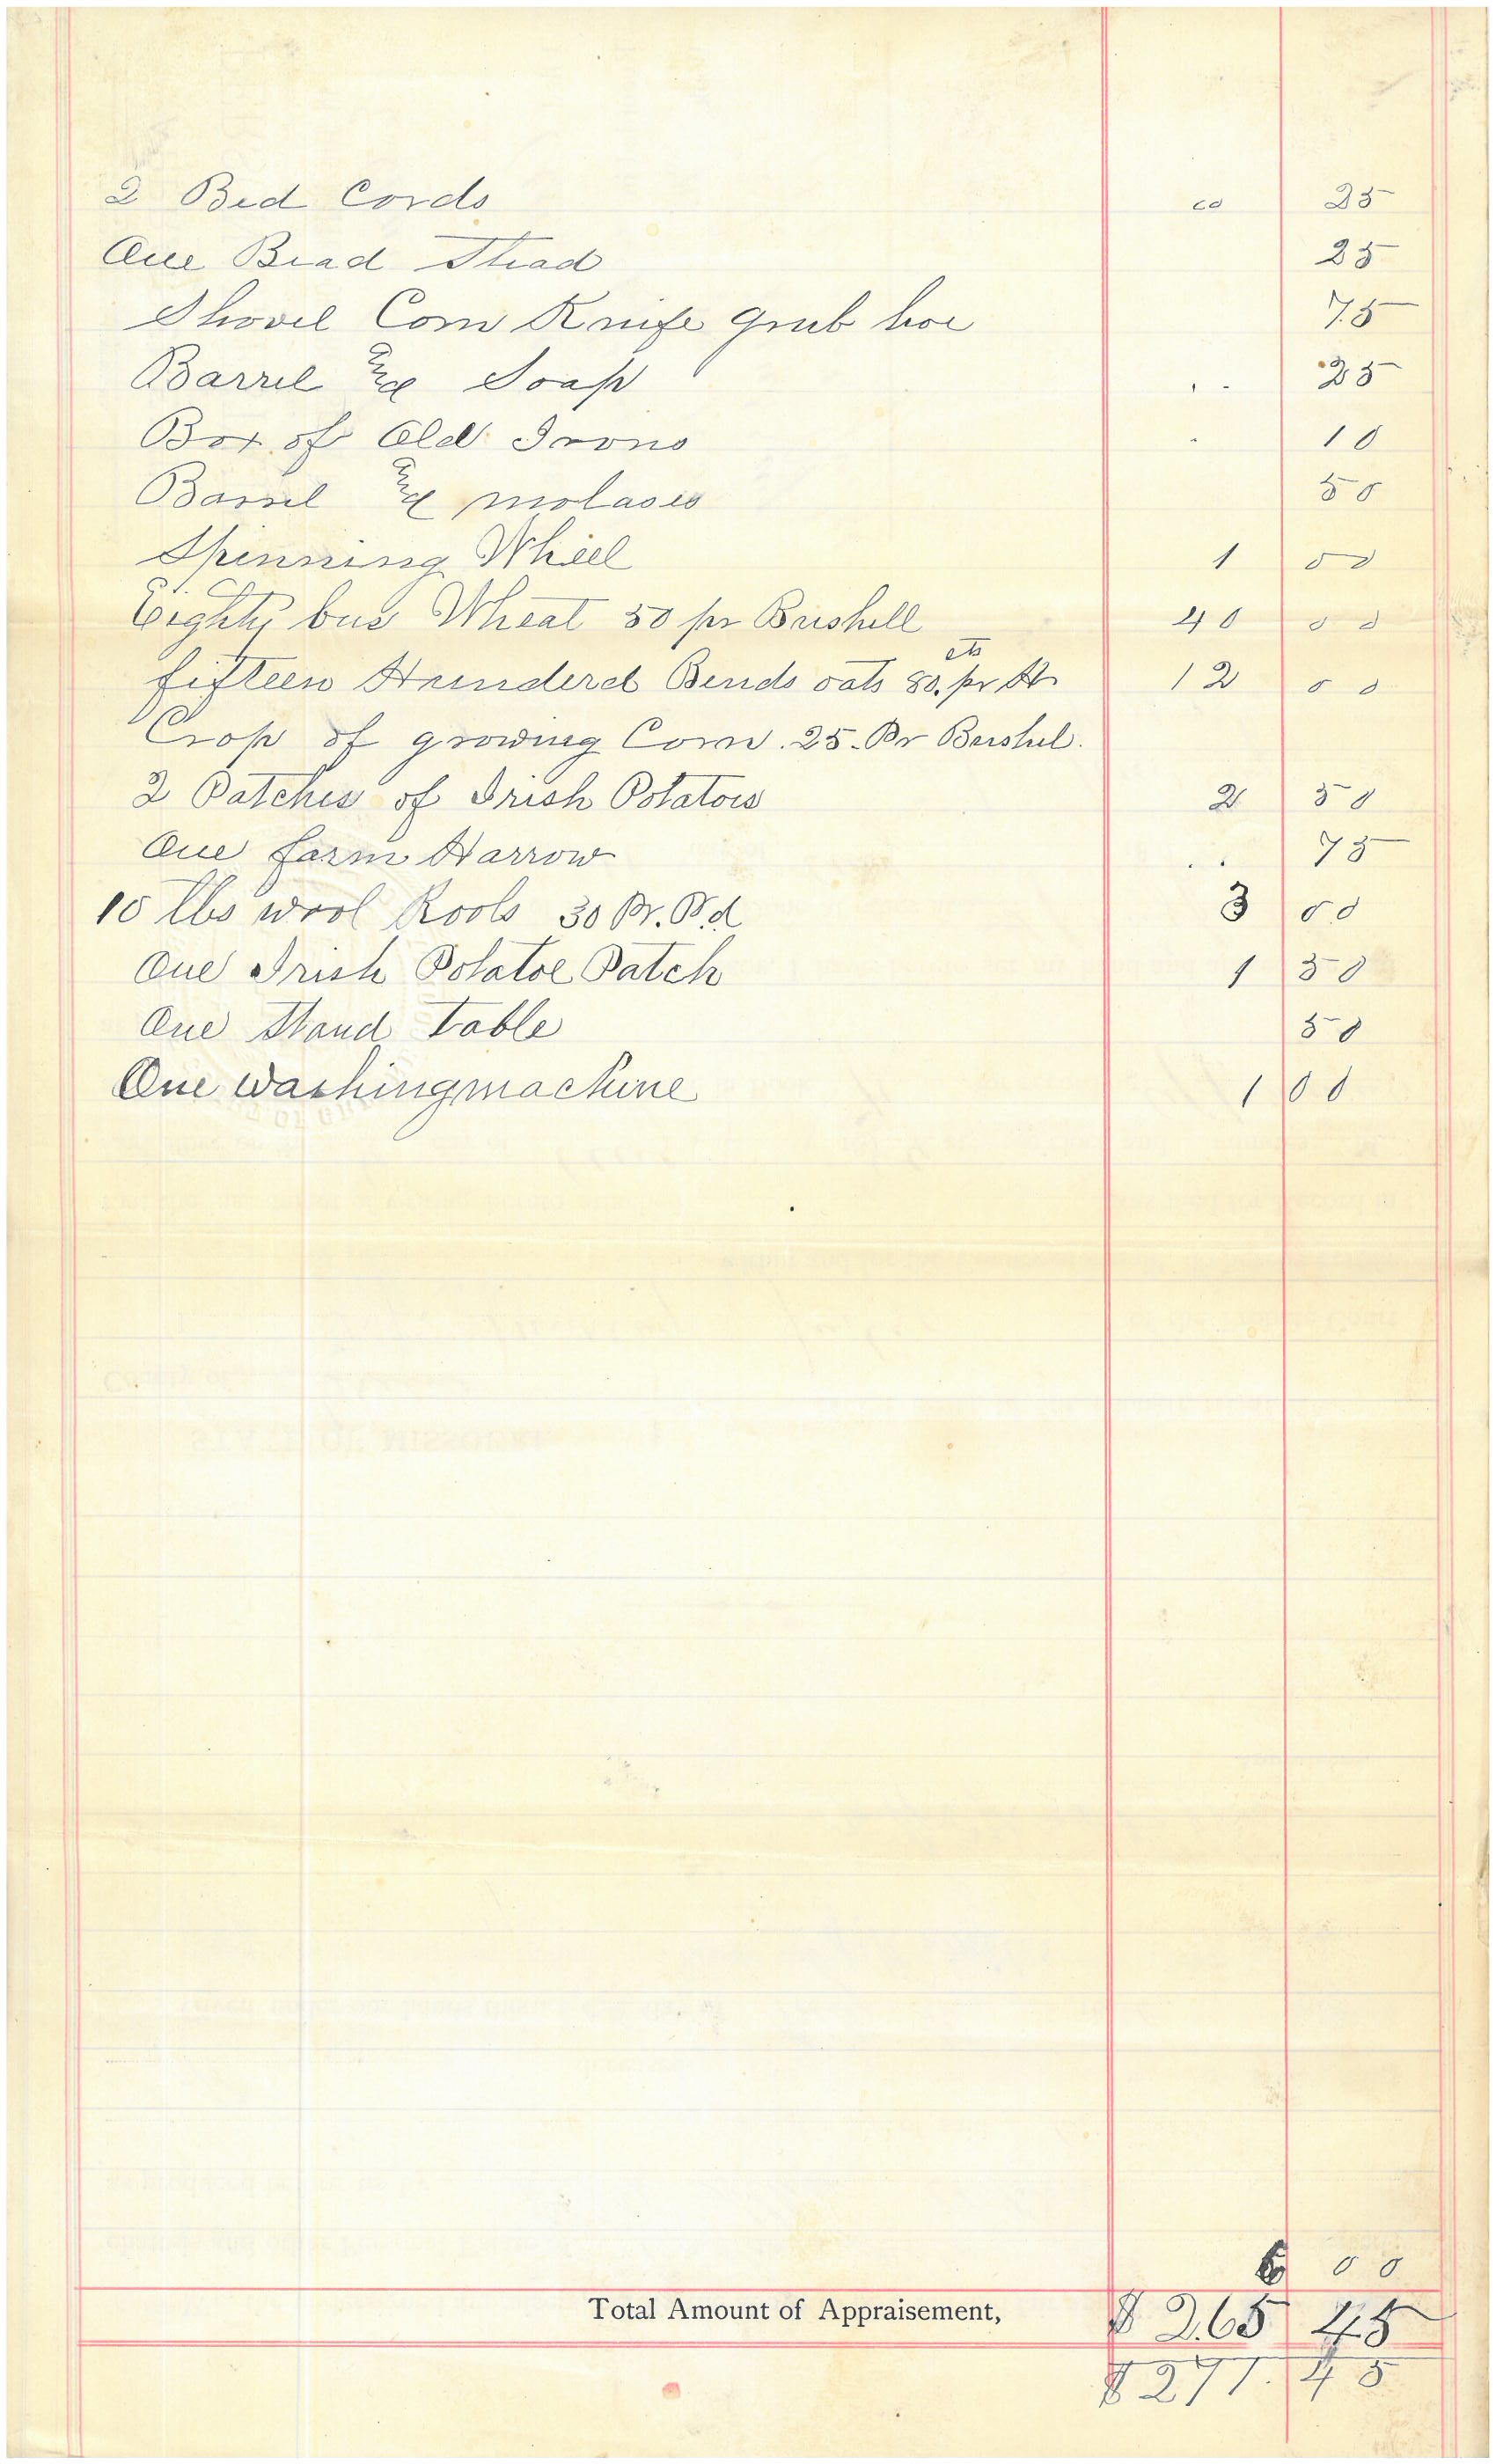 2 Bed Cords co 25
One Bead Stead 25
Shovel Corn Knife Grub hoe 75
Barrel & Soap . . 25
Box of Old Irons 10
Barrel & molases 50
Spinning Wheel 1 00
Eighty bus Wheat 50 pr Bushell 40 00
fifteen Hunderd Bends oats 80. cts pr H 12 00
Crop of growing Corn. 25. Pr Bushel.
2 Patches of Irish Potatoes 2 50
One farm Harrow . . 75
10 lbs wool Rools 30 Pr. Pd 3 00
One Irish Potatoe Patch 1 50
One Stand Table 50
One Washingmachine 1 00
6 00
Total Amount of Appraisement, $ 265 45
$ 271. 45